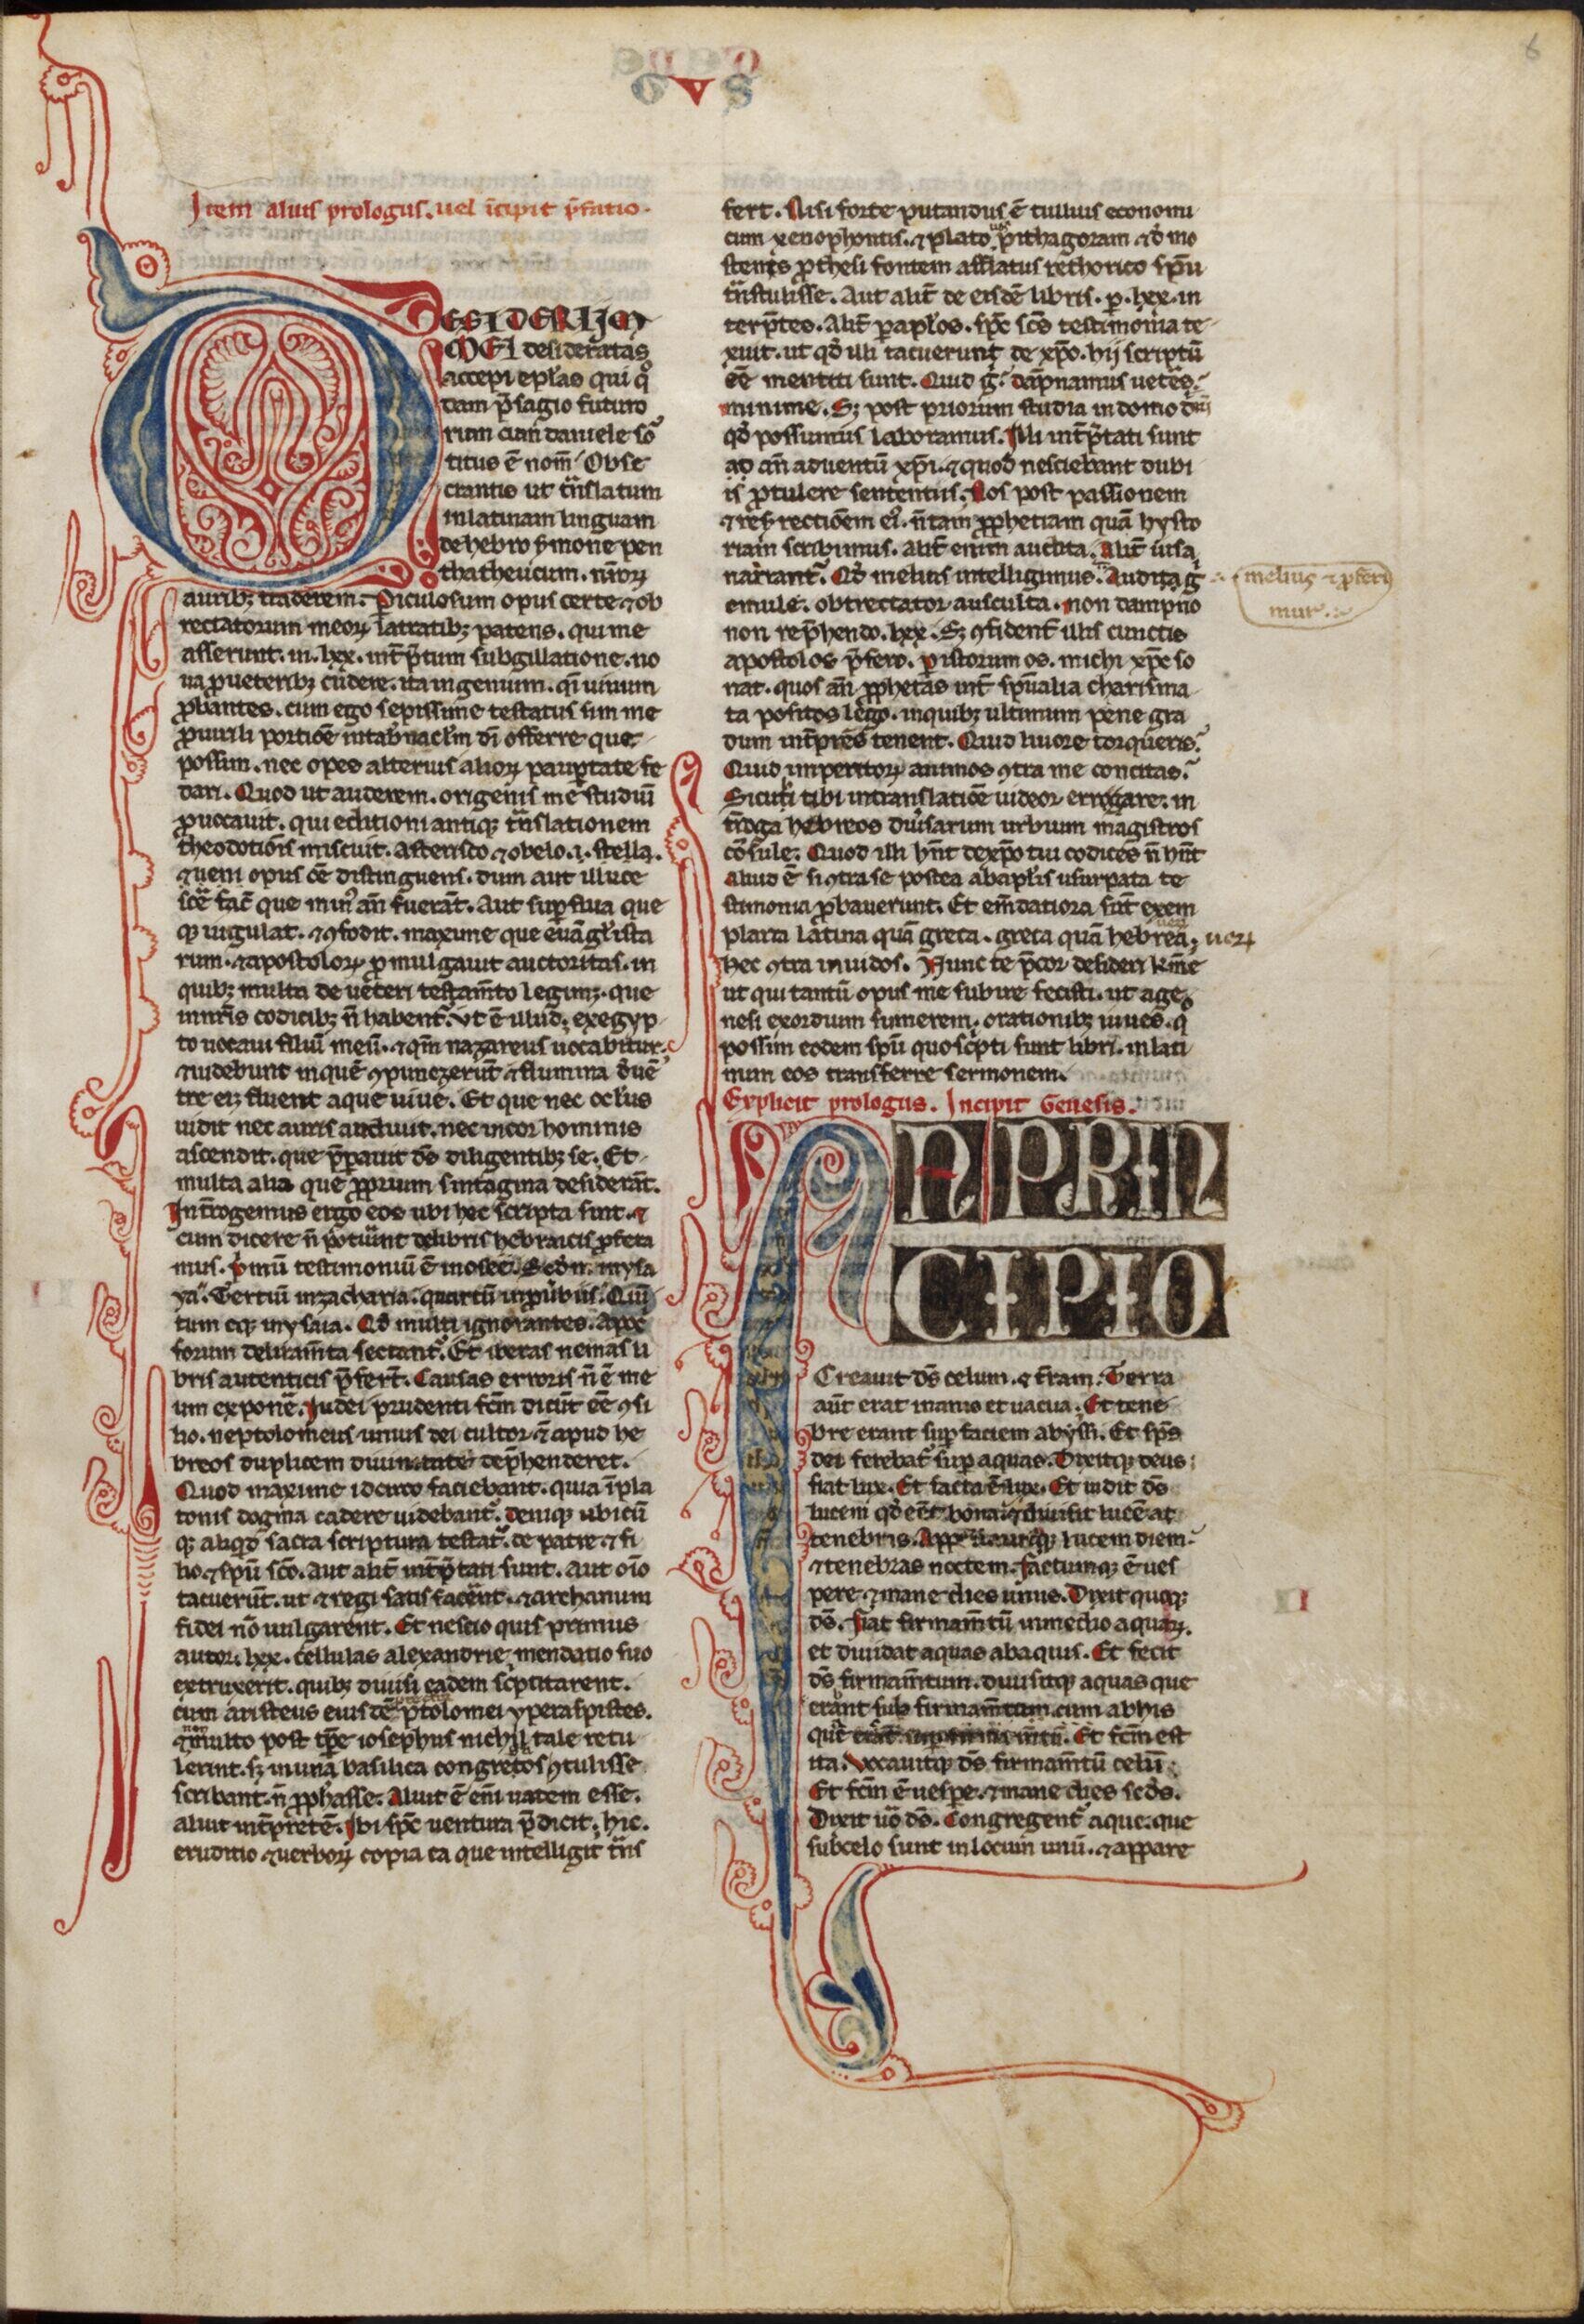 6
Item alius prologus. uel īcipit p̄fatio.
DESIDERIJ MEI desideratas
accepi ep̄las qui qͦ
dam p̄sagio futuro
rum cum daniele soꝛ
titus ē nom̄. Obse
crantis ut tͣnslatum
in latinam linguam
de hebreo s̄mone pen
thatheucum. nr̄oꝝ
aurib; traderem. Piculosum opus certe. ⁊ ob
rectatorum meoꝝ latratib; patens. qui me
asserunt. in. lxx. int̄p̄tum subgillatione. no
ua ꝓ ueterib; cudere. ita ingenium. qͣi uinum
ꝓbantes. cum ego sepissime testatus sim me
ꝓ uirili portiōe in tab̄nacl̄m dī offerre que
possim. nec opes alterius alioꝝ paupertate fe
dari. Quod ut auderem. origenis me studiū
ꝓuocauit. qui editioni antiq; tͣnslationem
theodotiōis miscuit. asterisco ⁊ obelo. i. stella.
⁊ ueru opus om̄e distinguens. dum aut illuce
scē fac̄ que minꝰ an̄ fuerāt. Aut supflua que
q; iugulat. ⁊ ꝯfodit. maxime que euāgl̄ista
rum. ⁊ apostoloꝝ ꝓmulgauit auctoritas. in
quib; multa de ueteri testam̄to legim;. que
in nr̄is codicib; n̄ habent̄. Vt ē illud. ex egyp
to uocaui filiū meū. ⁊ qm̄ nazareus uocabitur.
⁊ uidebunt in quē ꝯpunxerūt. ⁊ flumina d̓ uē
tre eiꝰ fluent aque uiue. Et que nec ocl̄us
uidit nec auris audiuit. nec in cor hominis
ascendit. que p̄parauit ds̄ diligentib; se. Et
multa alia que ꝓprium sintagma desiderāt.
Int̄rogemus ergo eos ubi hec scripta sint. ⁊
cum dicere n̄ potuerint de libris hebraicis ꝓfera
mus. Pͥmū testimoniū ē in osee. Secd̄m. in ysa
ya. Tertiū in zacharia. quartū in ꝓuerbiis. Quī
tum eq; in ysaia. Qd̓ multi ignorantes. Apoc
forum deliram̄ta sectant̄. Et iberas nemas li
bris autenticis p̄fert̄. Causas erroris n̄ ē me
um exponē. Iudei prudenti fc̄m dicūt ēē ꝯsi
lio. ne ptolomeus unius dei cultor. ⁊ apud he
breos duplicem diuinitatem dep̄henderet.
Quod maxime idcirco faciebant. quia ī pla
tonis dogma cadere uidebant̄. deniq; ubicū
q; aliqd̓ sacra scriptura testat̄. de patre. ⁊ fi
lio. ⁊ sp̄u sc̄o. aut alit̄ int̄p̄tati sunt. aut oīo
tacuerūt. ut ⁊ regi satis facerent. ⁊ archanum
fidei nō uulgarent. Et nescio quis primus
autor. lxx. cellulas alexandrie mendatio suo
extruxerit. quib; diuisi eadem sc̄ptitarent.
cum aristeus eiusdē ptolomei yperaspistes.
⁊ multo post tp̄e iosephus nichil tale retu
lerint. s; in una basilica congretos ꝯtulisse
scribant. n̄ ꝓphasse. Aliut ē em̄ uatem esse.
aliut int̄pretē. Ibi sp̄c uentura p̄dicit. hic.
eruditio ⁊ uerboꝝ copia ea que intelligit tͣns
fert. Nisi forte putandus ē tullius economi
cum xenophontis. ⁊ plato pithagoram ⁊ d̓ mo
stenis ꝓthesi fontem afflatus rethorico sp̄u
tͣnstulisse. Aut alit̄ de eisdē libris. p. lxx. in
terp̄tes. Alit̄ p apl̄os. sp̄c sc̄s testimonia te
xuit. ut qd̓ illi tacuerunt de xp̄o. hij scriptū
ēē mentiti sunt. Quid g̊. dāpnamus uetēs.
minime. S; post priorum studia in domo dn̄i
qd̓ possumus laboramus. Illi int̄p̄tati sunt
ad an̄ aduentū xp̄i. ⁊ quod nesciebant dubi
is ꝓtulere sententiis. Nos post passionem
⁊ res̄rectiōem eiꝰ. n̄ tam ꝓphetiam quā hysto
riam scribimus. Alit̄ enim audita. Alit̄ uisa
narrant̄. Qd̓ melius intelligimus. Audi tu g̊
melius ⁊ ꝓferi
mus.
emule. obtrectator ausculta. non dampno
non rep̄hendo. lxx. S; ꝯfident̄ illis cunctis
apostolos p̄fero. p istorum os. michi xp̄c so
nat. quos an̄ ꝓphetas int̄ sp̄ualia charisma
ta positos lego. in quib; ultimum pene gra
dum int̄p̄res tenent. Quid liuore torqueris.
Quid imperitoꝝ animos ꝯtra me concitas.
Sicubi tibi in translatiōe uideor errare. in
t̄roga hebreos diuersarum urbium magistros
cōsule. Quod illi hn̄t de xp̄o tui codices n̄ hn̄t
Aliud ē si ꝯtra se postea ab apl̄is usurpata te
stimonia ꝓbauerunt. Et em̄datiora sūt exem
plaria latina quā greca. greca quā hebrea. ueꝝ
hec ꝯtra inuidos. Nunc te p̄cor desideri k̄me
ut qui tantū opus me subire fecisti. ut a ge
nesi exordium sumerem. orationib; iuues. qͦ
possim eodem sp̄u quo sc̄pti sunt libri. in lati
num eos transferre sermonem.
Explicit prologus. Incipit Genesis.
IN PRIN
CIPIO
Creauit ds̄ celum. ⁊ t̄ram. Terra
aūt erat inanis et uacua. Et tene
bre erant sup faciem abyssi. Et sp̄s
dei ferebat̄ sup aquas. Dixitq; deus
fiat lux. Et facta ē lux. Et uidit ds̄
lucem qd̓ eēt bona. ⁊ diuisit lucē ac
tenebris. Appellauitq; lucem diem
⁊ tenebras noctem. Factumq; ē ues
pere ⁊ mane dies unus. Dixit quoq;
ds̄. Fiat firmam̄tū in medio aquaꝝ.
et diuidat aquas ab aquis. Et fecit
ds̄ firmam̄tum. diuisitq; aquas que
erant sub firmam̄tum. cum ab his
que erāt super firmam̄tū. Et fc̄m est
ita. Vocauitq; ds̄ firmam̄tū celū.
Et fc̄m ē uespe. ⁊ mane dies secd̄s.
Dixit uͦ ds̄. Congregent̄ aque. que
sub celo sunt in locum unū. ⁊ appare